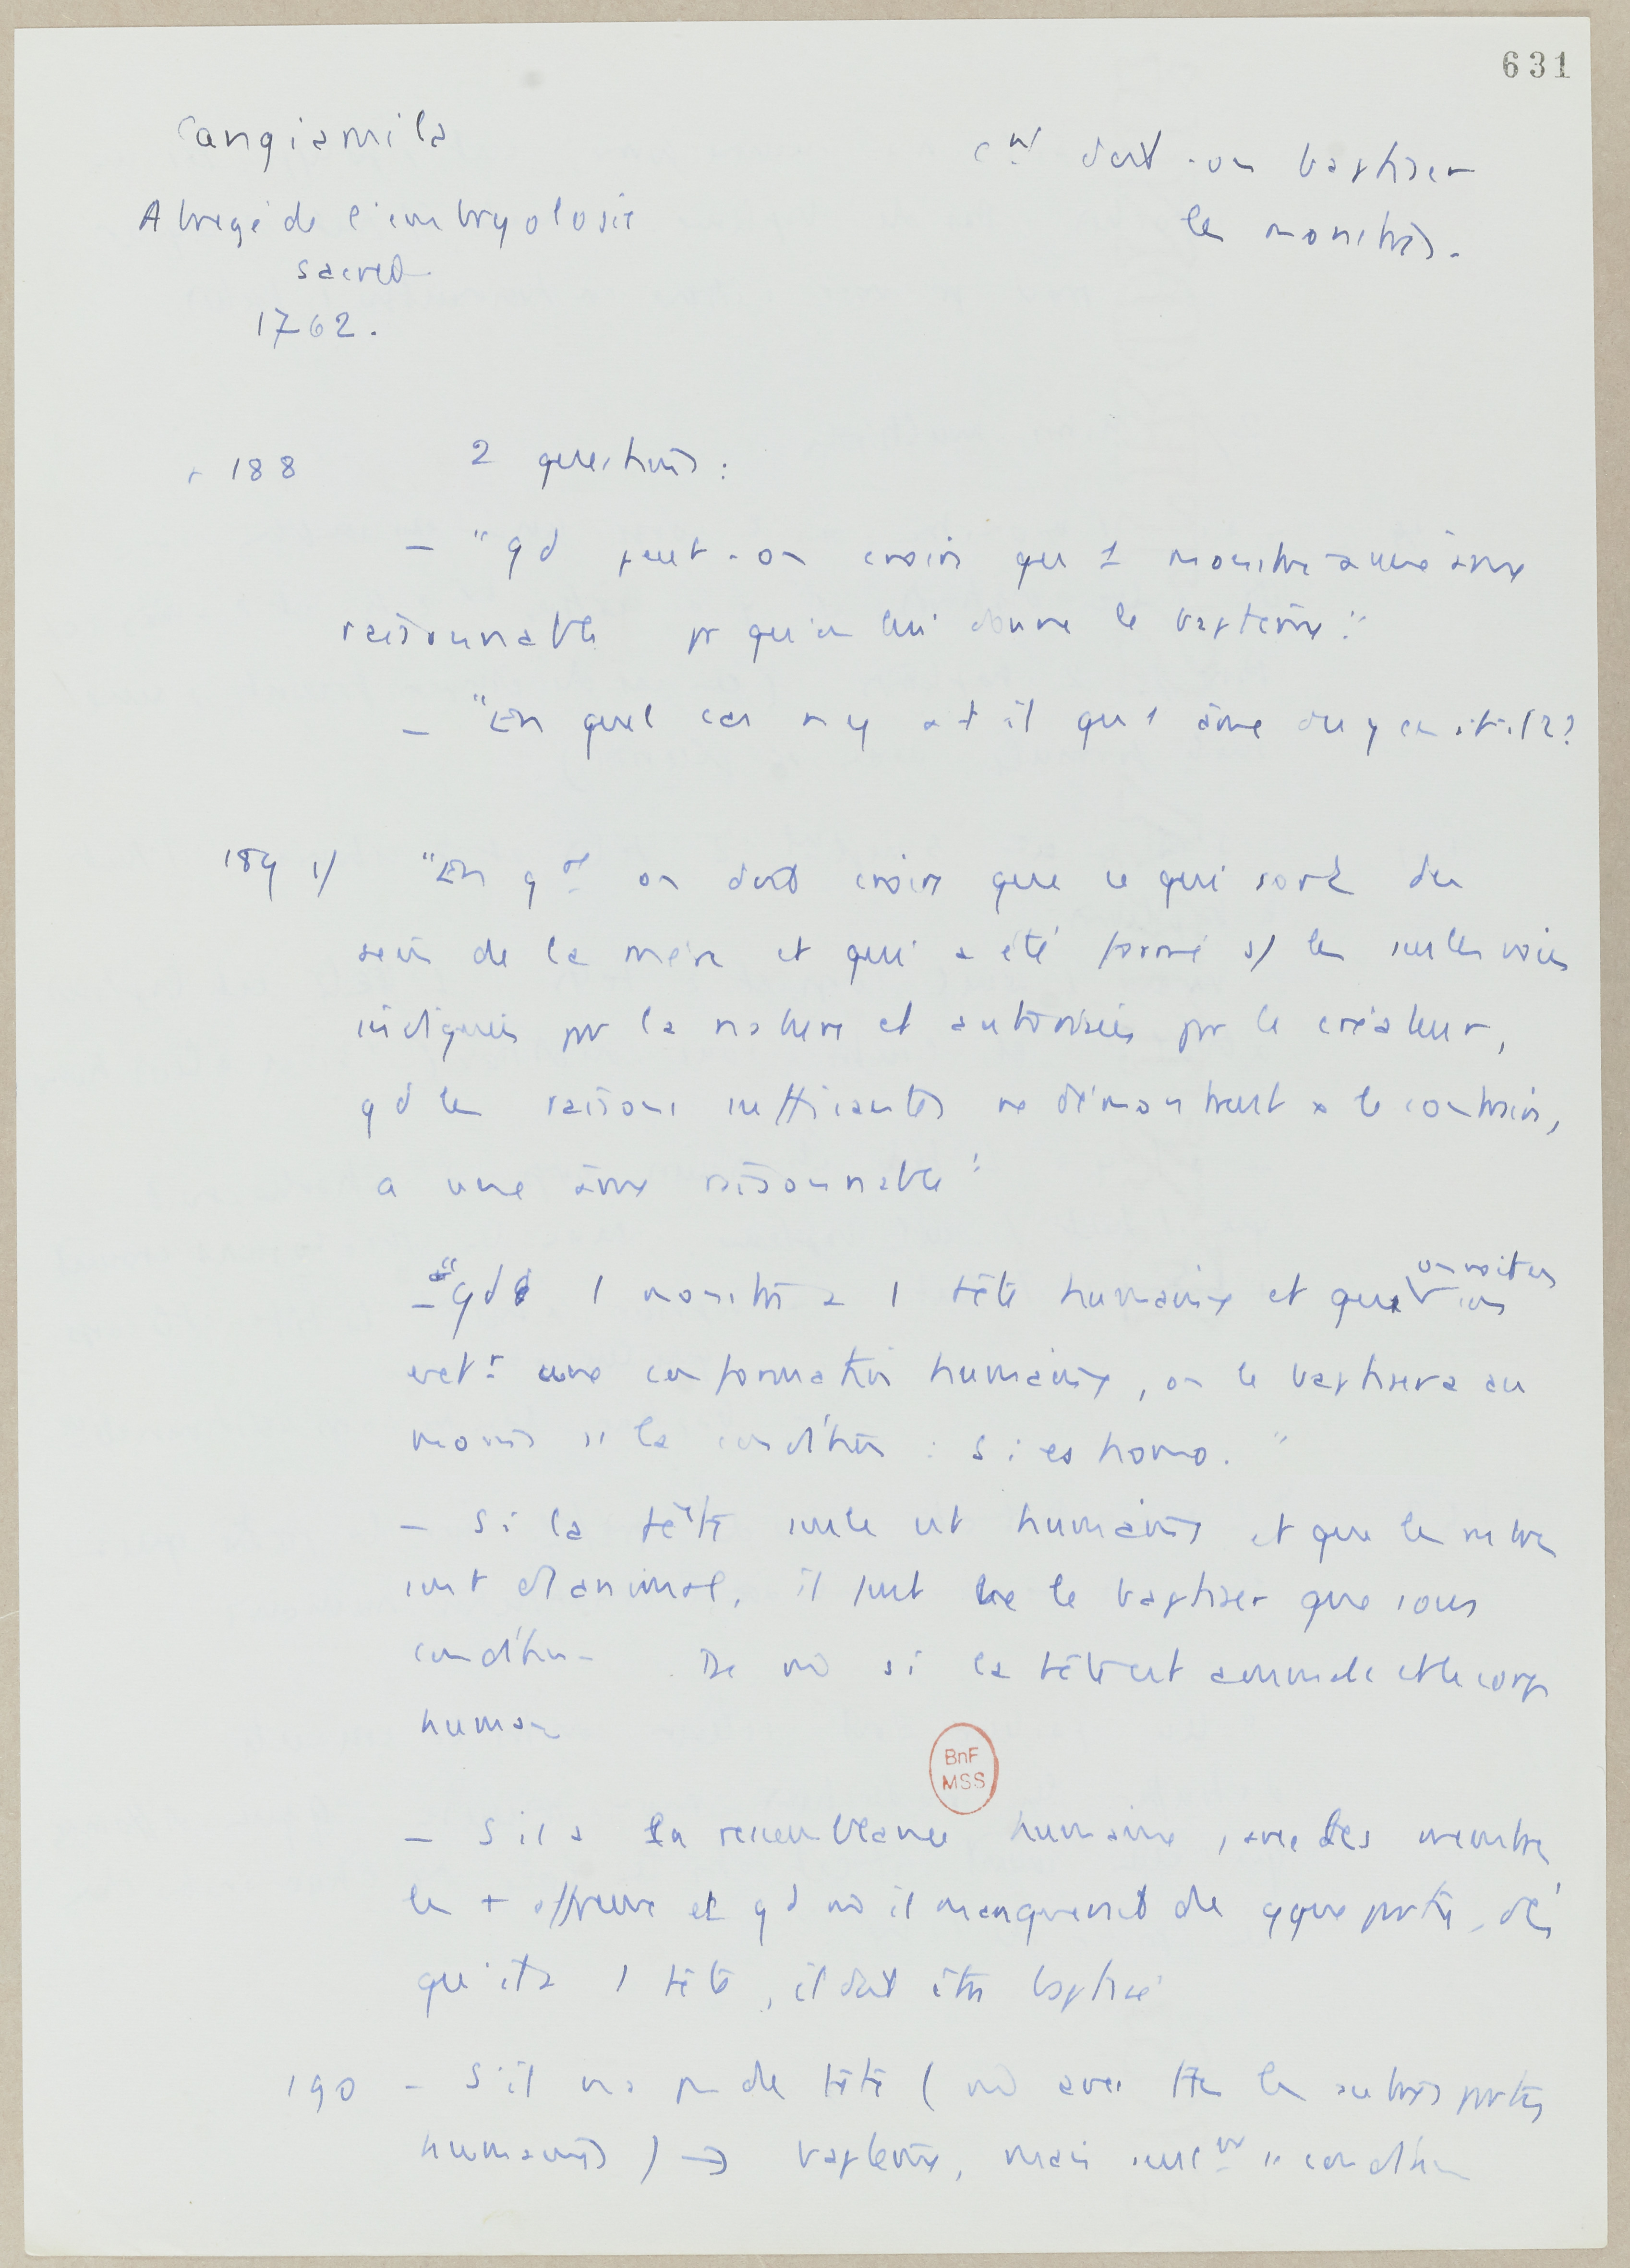 631
Cangiamila
Abrégé de l'embryologie
sacrée
1762.
cᵗ doit-on baptiser
les monstres.
p 188 2 questions :
- "qd peut-on croire qu 1 monstre a une âme
raisonnable pr qu'on lui donne le baptême"
- "En quel cas n'y a-t-il qu'1 âme ou y en a-t-il 2 ?
189 1/ "En gᵃˡ on doit croire que ce qui sort du
sein de la mère et qui a été formé s/ les seules voies
indiquées par la nature et autorisées par le créateur,
qd les raisons suffisantes ne démontrent x le contraire,
a une âme raisonnable"
- "qd 1 monstre a 1 tête humaine et que on voit en
une conformation humaine, on le baptisera au
moins ss la condition : si es homo."
- Si la tête seule est humaine et que les mbres
sont d'animal, il faut ne le baptiser que sous
condition. De mê si la tête est animale et le corps
humain
- S'il a la ressemblance humaine, avec des membres
les + affreux et qd mê il manquerait de qque partie, dès
qu'il a 1 tête, il doit être baptisé
190 - S'il n'a pas de tête (mê avec ttes les autres parties
humaines) → baptême, mais seulᵗ ss condition
BnF
MSS